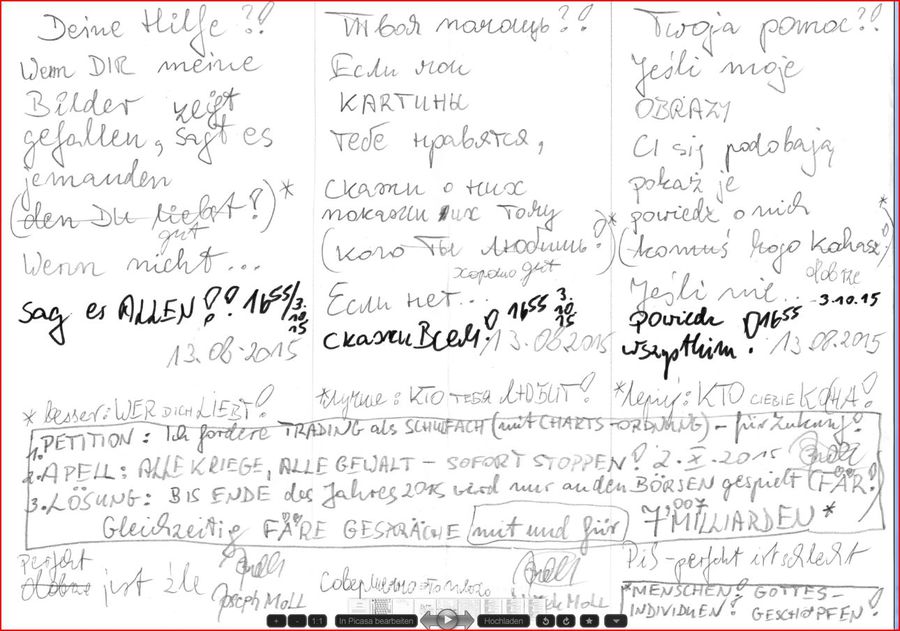 Deine Hilfe?!
Wenn DIR meine
Bilder zeigt
gefallen, sagt es
jemanden
(den DU liebst?)*
gut
Wenn nicht...
sag es ALLEN! 16 55/3.10.15
13.08.2015
*besser: WER DICH LIEBT!
Твоя помощь?!
Если мои
КАРТИНЫ
тебе нравятся,
скажи о них
покажи их тому
(кого ТЫ любишь?)*
хорошо gut
Если нет...
скажи Всем! 16 55 3.10.15
13.08.2015
*лучше: КТО ТЕБЯ ЛЮБИТ!
Twoja pomoc?!
Jeśli moje
OBRAZY
CI się podobają
pokaż je
powiedz o nich
(komuś kogo Kochasz?)*
dobrze
Jeśli nie... 3.10.15
powiedz 16 55
wszystkim! 13.08.2015
*lepiej: KTO CIEBIE KOCHA!
1. PETITION: Ich fordere TRADING als SCHULFACH (mit CHARTS-ORDNUNG) - für Zukunft!
2. APELL: ALLE KRIEGE, ALLE GEWALT - SOFORT STOPPEN! 2.X.2015
3. LÖSUNG: BIS ENDE des Jahres 2015 wird nur an den BÖRSEN gespielt (FÄR!)
Gleichzeitig FÄRE GESPRÄCHE mit und für 7,007 MILLIARDEN*
Perfekt
dobrze jest źle
Joseph Moll
PiS-perfekt ist schlecht
*MENSCHEN! GOTTES-
INDIVIDUEN! GESCHÖPFEN!
In Picasa bearbeiten
Hochladen
1:1